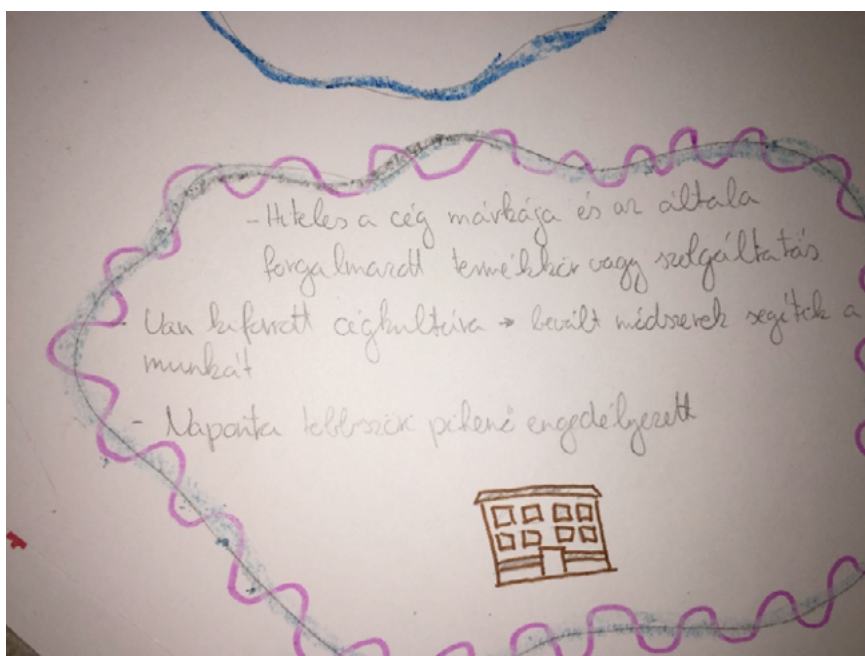 - Hiteles a cég márkája és az általa
forgalmazott termékkör vagy szolgáltatás
- Van kiforrott cégkultúra → bevált módszerek segítik a
munkát
- Naponta többször pihenő engedélyezett